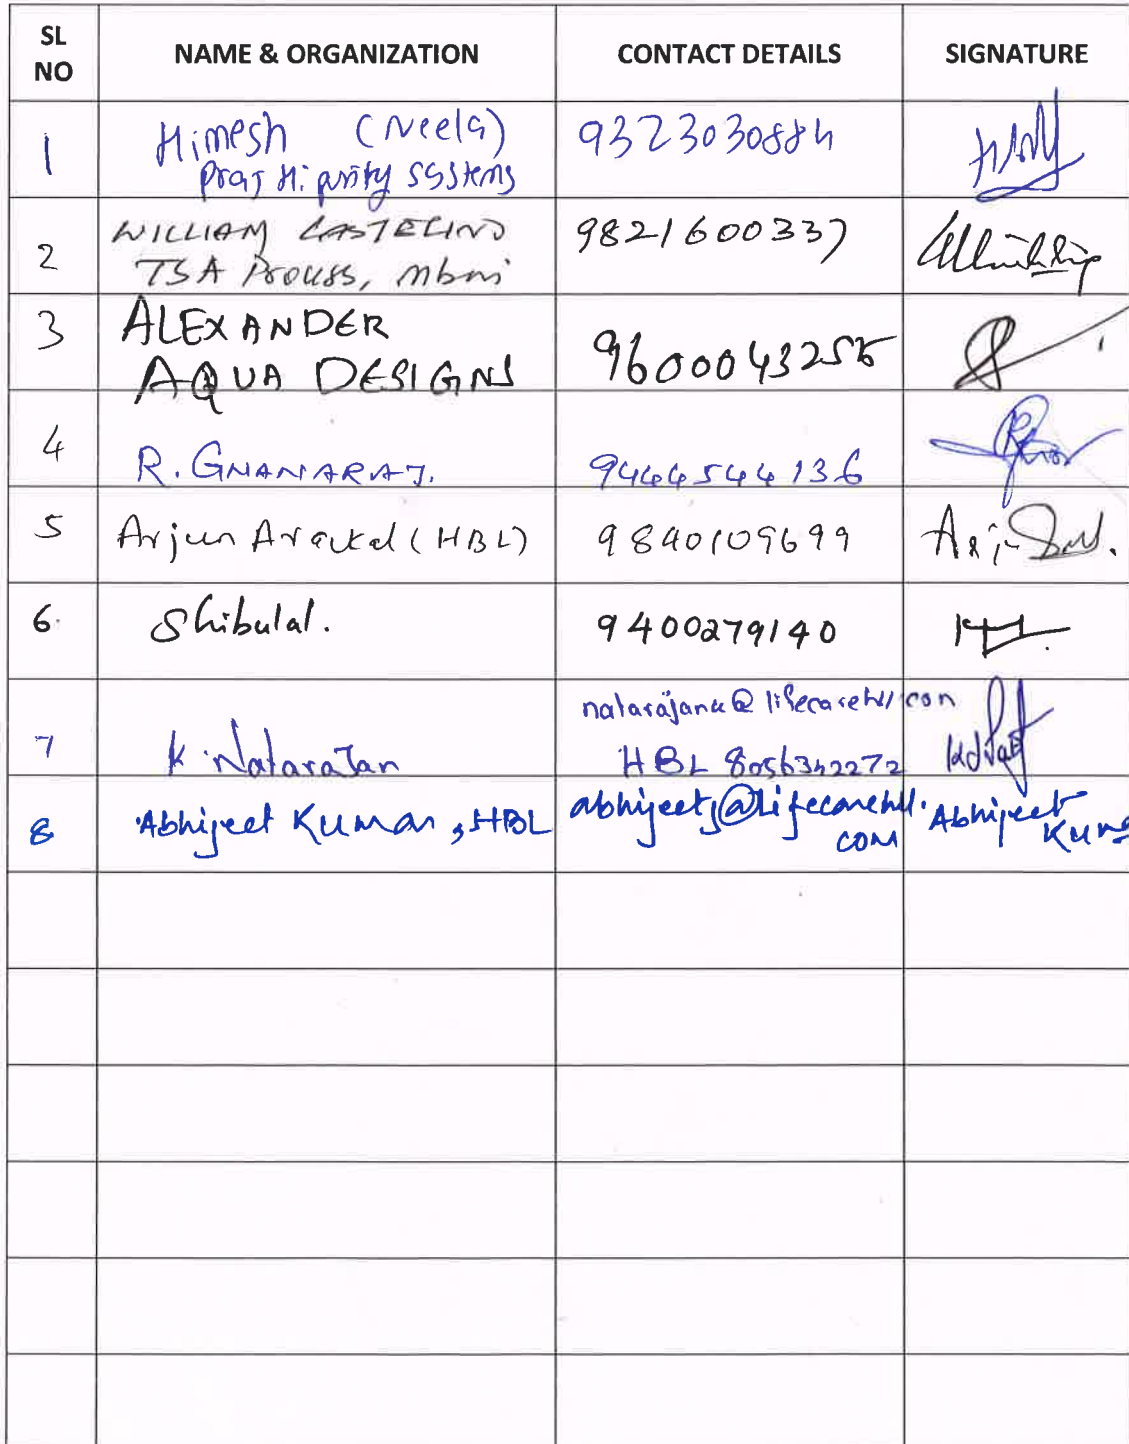 SL NO
NAME & ORGANIZATION
CONTACT DETAILS
SIGNATURE
1
Himesh (Neela)
Praj Hi purity systems
9323030884
2
WILLIAM CASTELINO
TSA Process, Mbai
9821600337
3
ALEXANDER
AQUA DESIGNS
9600043255
4
R. GNANARAJ.
9444544136
5
Arjun Arackal (HBL)
9840109699
6.
Shibulal.
9400279140
7
K. Natarajan
natarajank@lifecarehll.com
HBL 8056342272
8
Abhijeet Kumar, HBL
abhijeet@lifecarehll.
com
Abhijeet